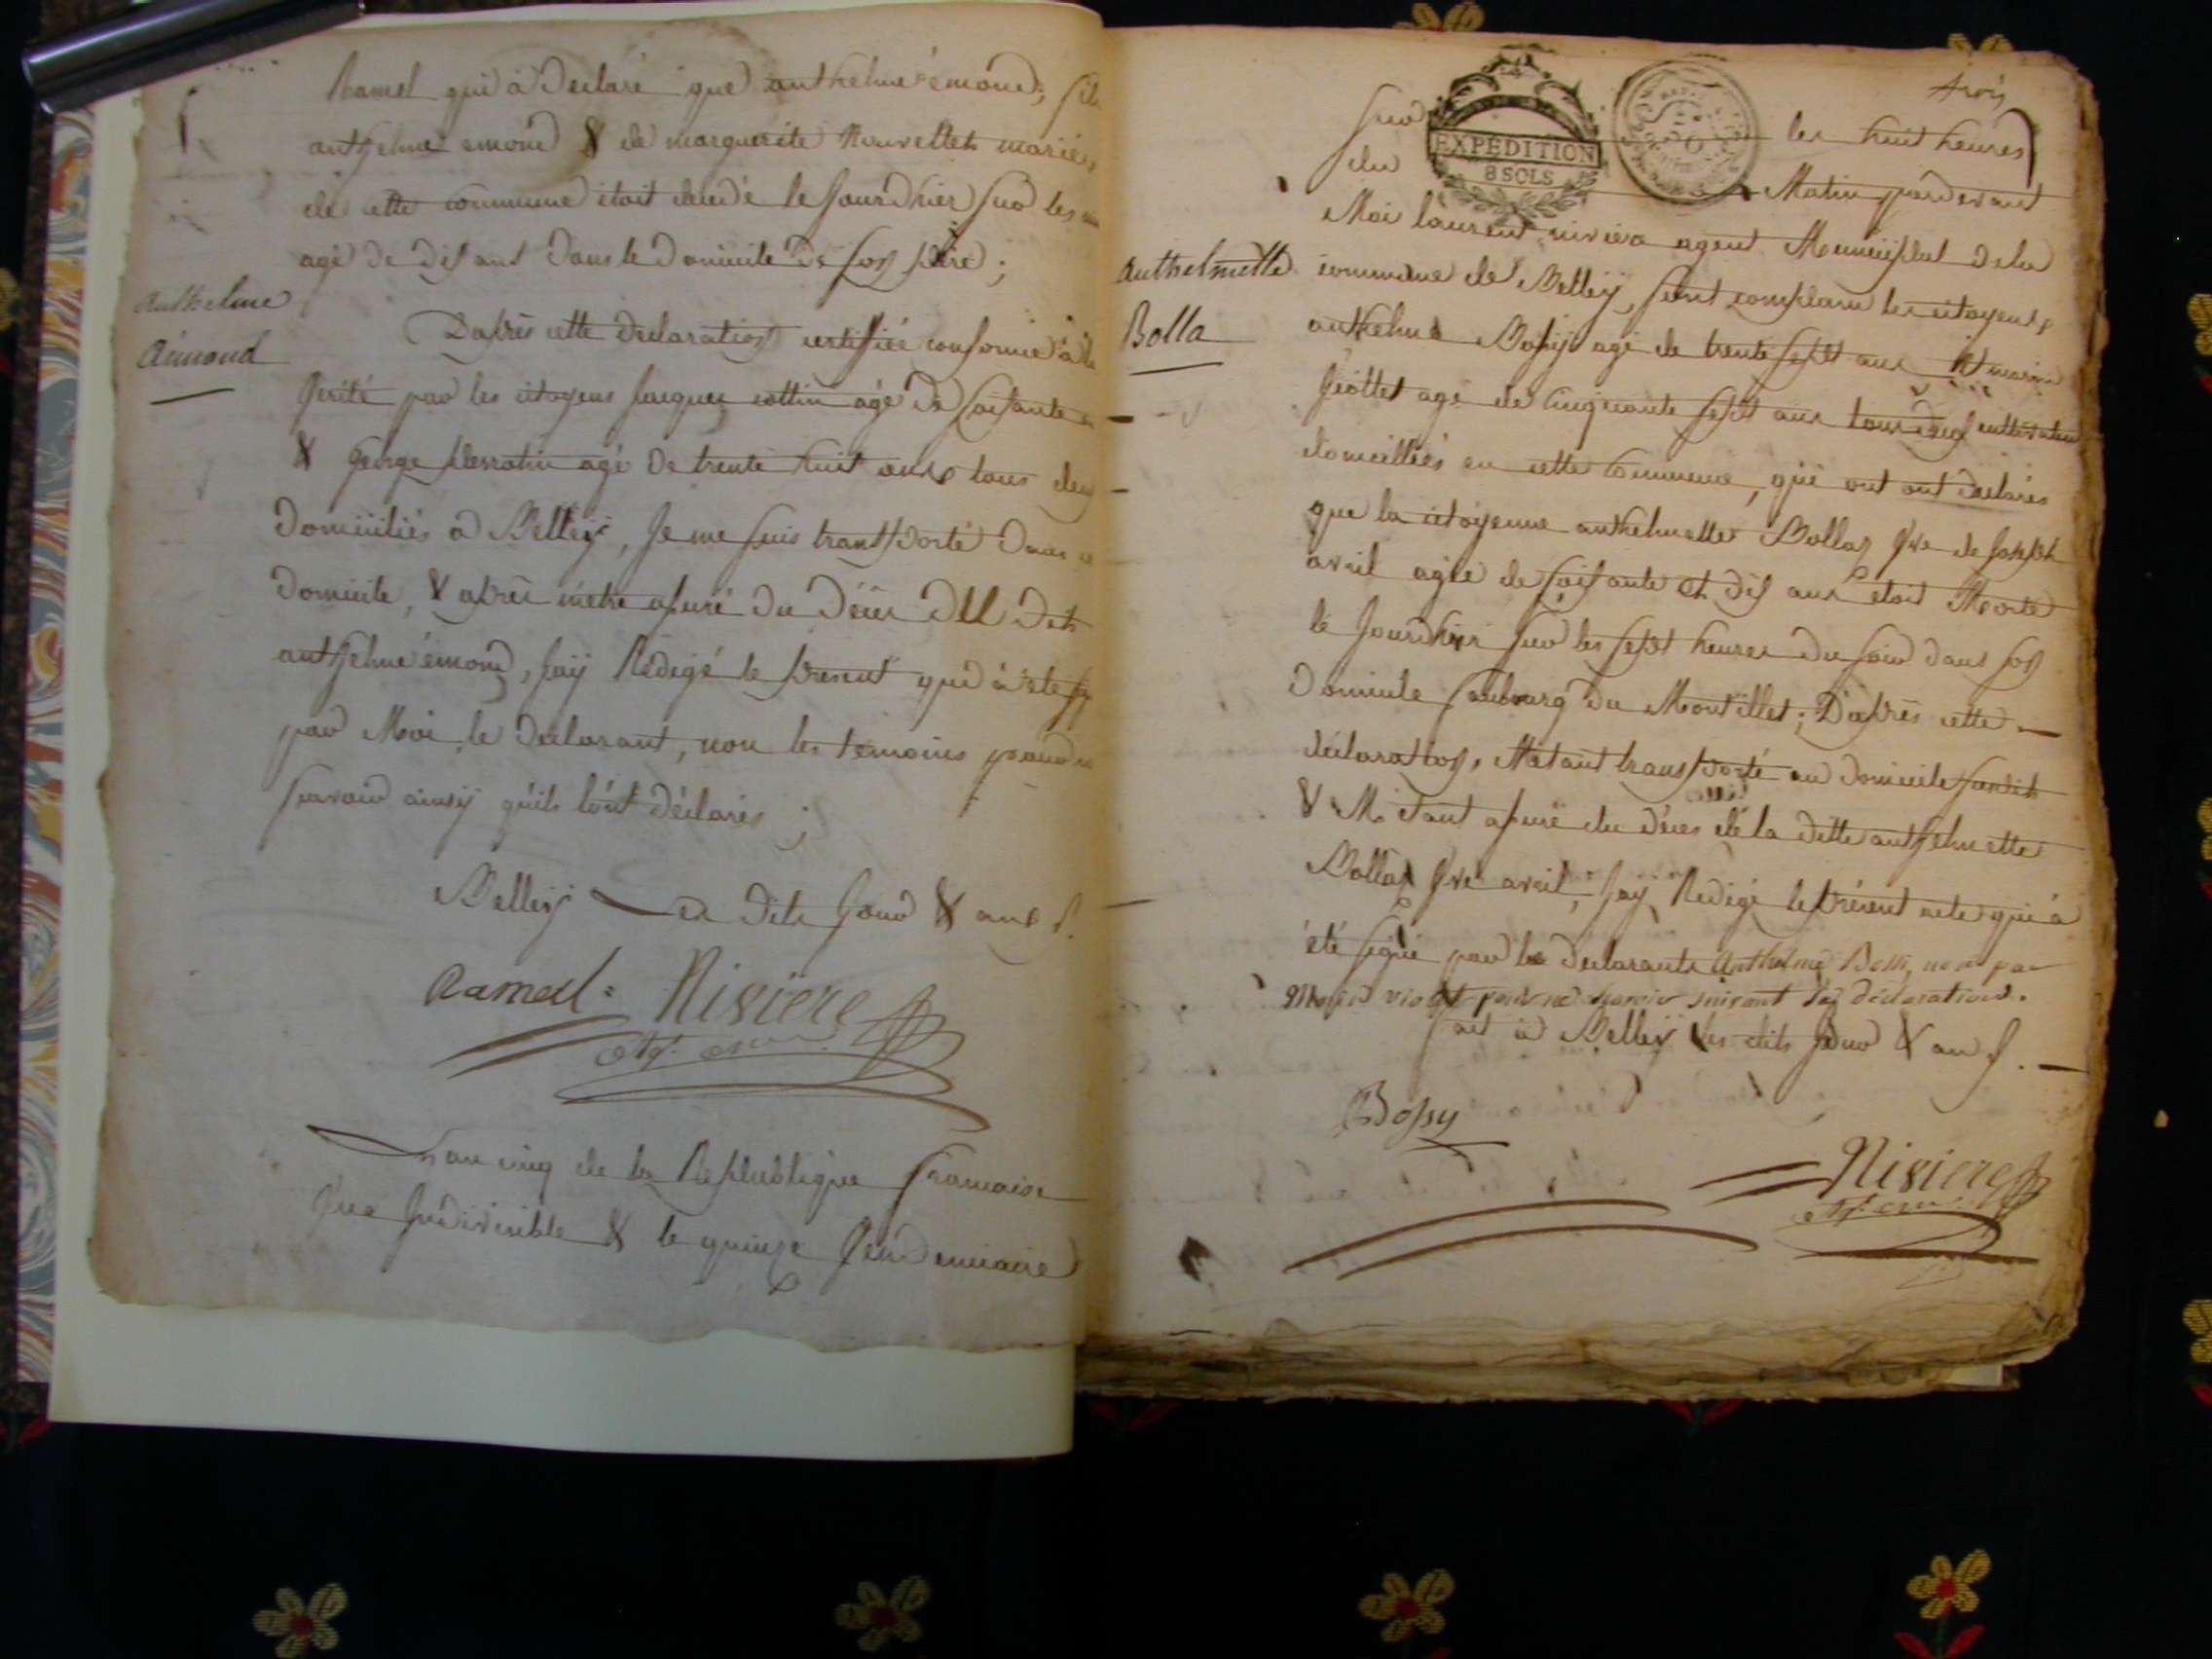 Ramel qui à déclaré que anthelme émond, fils
anthelme emond & de marguerite Nouvellet mariés
de cette commune étoit décédé le jourdhier sur les
agé de dix ans dans le domicile de son père ;
Anthelme
Aimond
Daprès cette declaration certifiée conforme à la
vérité par les citoyens Jacques cottin agé de soixante
& George perratin agé de trente huit ans tous deux
Domiciliés à Belley, je me suis transporté dans
Domicile, & après m'etre assuré du décès dud. dit
anthelme émond, jay Rédigé le present qui à eté
par Moi, le déclarant, non les témoins pour ne
scavoir ainsy qu'ils lont déclarés ;
Belley les dits jour & an
Ramel Rivière
Lan cinq de la République francaise
une Indivisible & le quinze vendemiaire
trois
sur les huit heures
du Matin pardevant
EXPEDITION
8 SOLS
Moi laurent rivière agent Municipal de la
commune de Belley, sont comparu les citoyens
Anthelmette
Bolla
anthelme Bossy agé de trente sept ans et marin
viollet agé de cinquante sept ans tous deux cultivateurs
domiciliés en cette commune, qui ont ont déclarés
que la citoyenne anthelmette Bollaz vve de Joseph
avril agée de soixante et dix ans étoit Morte
le jourdhier sur les sept heures du soir dans son
Domicile faubourg du Montillet ; Daprès cette
déclaration, M'étant transporté au domicile susdit
& M'étant assuré du décès de la ditte anthelmette
Bollaz vve avril, jay Redigé le présent acte qui à
été signé par les declarants Anthelme Bossi, non par
Marin violet pour ne scavoir suivant sa déclaration.
fait à Belley les dits jour & an
Bossy
Rivière